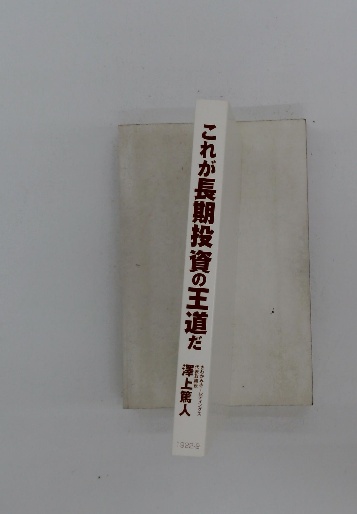 これが長期投資の王道だ
澤上篤人